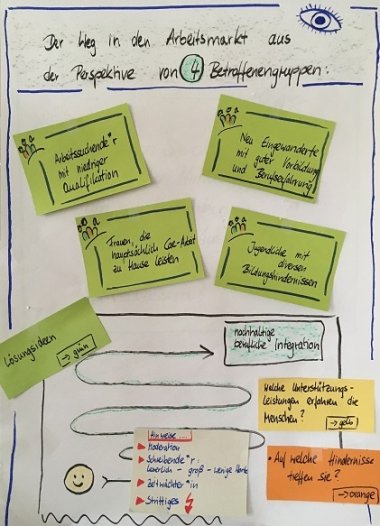 Der Weg in den Arbeitsmarkt aus
der Perspektive von 4 Betroffenengruppen:
Arbeitssuchende*r
mit niedriger
Qualifikation
Neu Eingewanderte
mit guter Vorbildung
und Berufserfahrung
Frauen, die
hauptsächlich Care-Arbeit
zu Hause leisten
Jugendliche mit
diversen
Bildungshindernissen
Lösungsideen
→ grün
nachhaltige
berufliche Integration
Welche Unterstützungs-
leistungen erfahren die
Menschen?
→ gelb
Hinweise ...
Moderation
Schreibende*r:
leserlich - groß - wenige Worte
Zeitwächter*in
Strittiges
• Auf welche Hindernisse
treffen sie?
→ orange